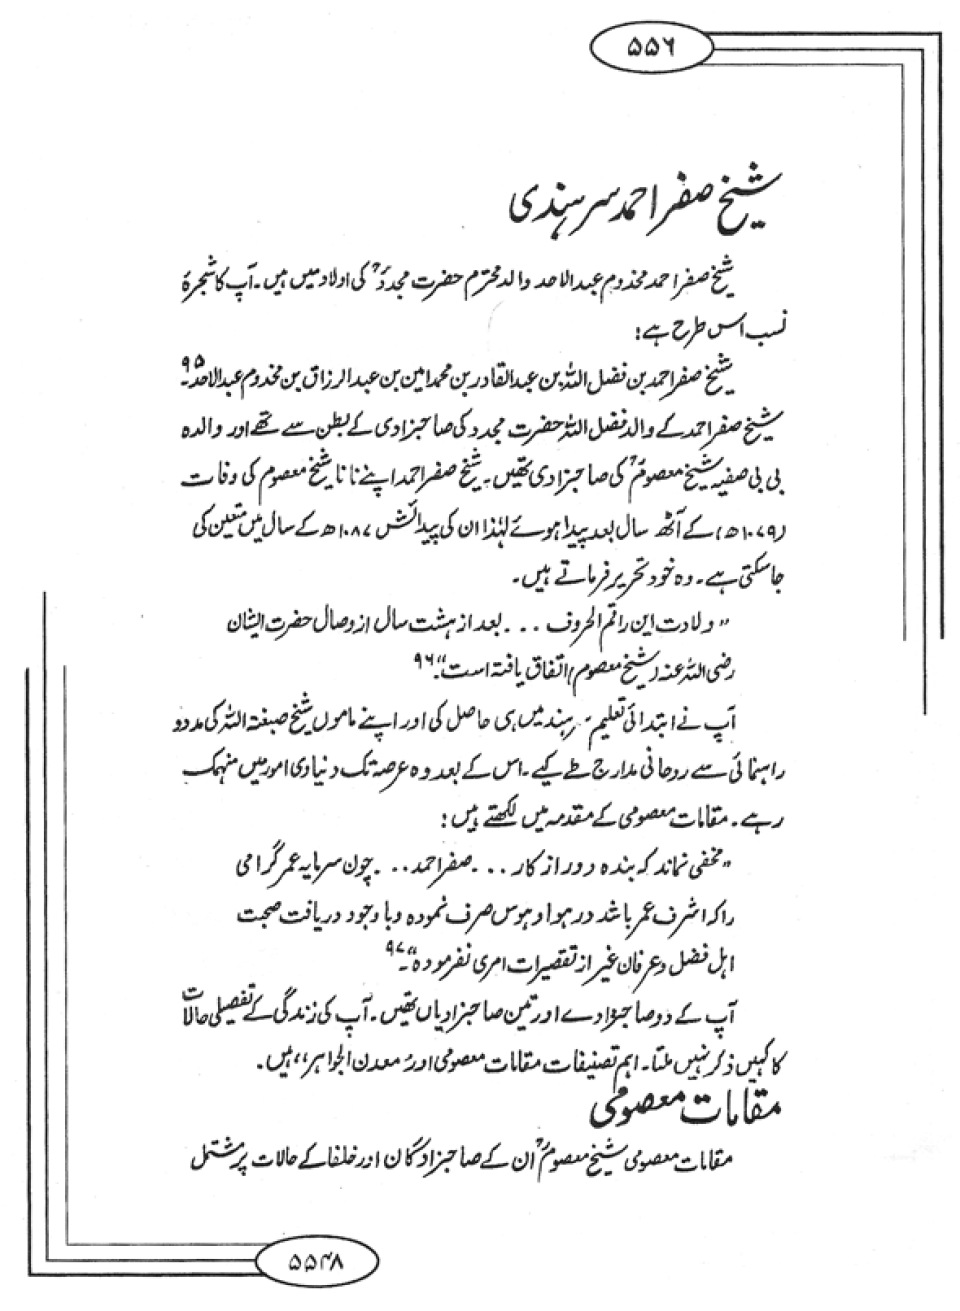 ۵۵۶
شیخ صفر احمد سرہندی
شیخ صفر احمد مخدوم عبدالاحد والد محترم حضرت مجددؒ کی اولاد میں ہیں۔ آپ کا شجرۂ
نسب اس طرح ہے:
شیخ صفر احمد بن فضل اللہ بن عبدالقادر بن محمد امین بن عبدالرزاق بن مخدوم عبدالاحد۔۹۵
شیخ صفر احمد کے والد فضل اللہ حضرت مجدد کی صاحبزادی کے بطن سے تھے اور والدہ
بی بی صفیہ شیخ معصومؒ کی صاحبزادی تھیں۔ شیخ صفر احمد اپنے نانا شیخ معصوم کی وفات
(۱۰۷۹ھ) کے آٹھ سال بعد پیدا ہوئے لہٰذا ان کی پیدائش ۱۰۸۷ھ کے سال میں متعین کی
جاسکتی ہے۔ وہ خود تحریر فرماتے ہیں۔
”ولادت این راقم الحروف ... بعد از ہشت سال از وصال حضرت ایشان
رضی اللہ عنہ (شیخ معصوم) اتفاق یافتہ است“۔۹۶
آپ نے ابتدائی تعلیم سرہند میں ہی حاصل کی اور اپنے ماموں شیخ صبغۃ اللہ کی مدد و
راہنمائی سے روحانی مدارج طے کیے۔ اس کے بعد وہ عرصہ تک دنیاوی امور میں منہمک
رہے۔ مقامات معصومی کے مقدمہ میں لکھتے ہیں:
”مخفی نماند کہ بندہ دور از کار ... صفر احمد ... چون سرمایہ عمر گرامی
را کہ اشرف عمر باشد در ہوا و ہوس صرف نمودہ و با وجود دریافت صحبت
اہل فضل و عرفان غیر از تقصیرات امری نفرمودہ“۔۹۷
آپ کے دو صاحبزادے اور تین صاحبزادیاں تھیں۔ آپ کی زندگی کے تفصیلی حالات
کا کہیں ذکر نہیں ملتا۔ اہم تصنیفات مقامات معصومی اور ”معدن الجواہر“ ہیں۔
مقامات معصومی
مقامات معصومی شیخ معصومؒ ان کے صاحبزادگان اور خلفا کے حالات پر مشتمل
۵۵۴۸